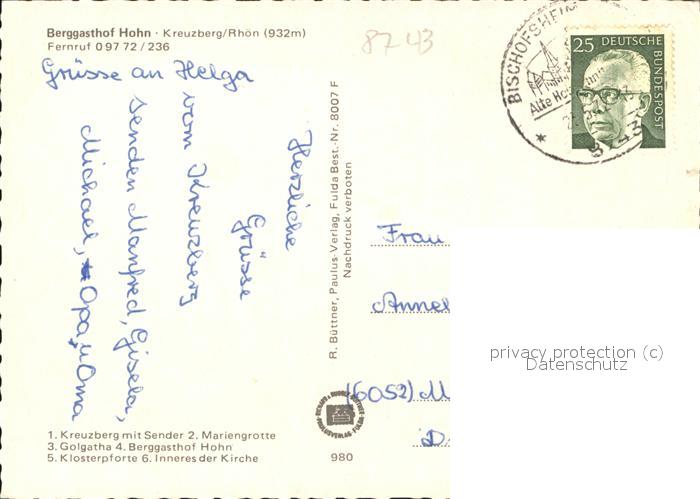 Berggasthof Hohn · Kreuzberg/Rhön (932m)
Fernruf 0 97 72 / 236
8743
Grüsse an Helga
Herzliche
Grüsse
vom Kreuzberg
senden Manfred, Gisela,
Michael, Opa, u Oma
1. Kreuzberg mit Sender 2. Mariengrotte
3. Golgatha 4. Berggasthof Hohn
5. Klosterpforte 6. Inneres der Kirche
R. Büttner, Paulus-Verlag, Fulda Best.-Nr. 8007 F
Nachdruck verboten
980
BISCHOFSHEIM
Alte
8743
25 DEUTSCHE
BUNDESPOST
Frau
Annel
(6052) M
D
privacy protection (c)
Datenschutz